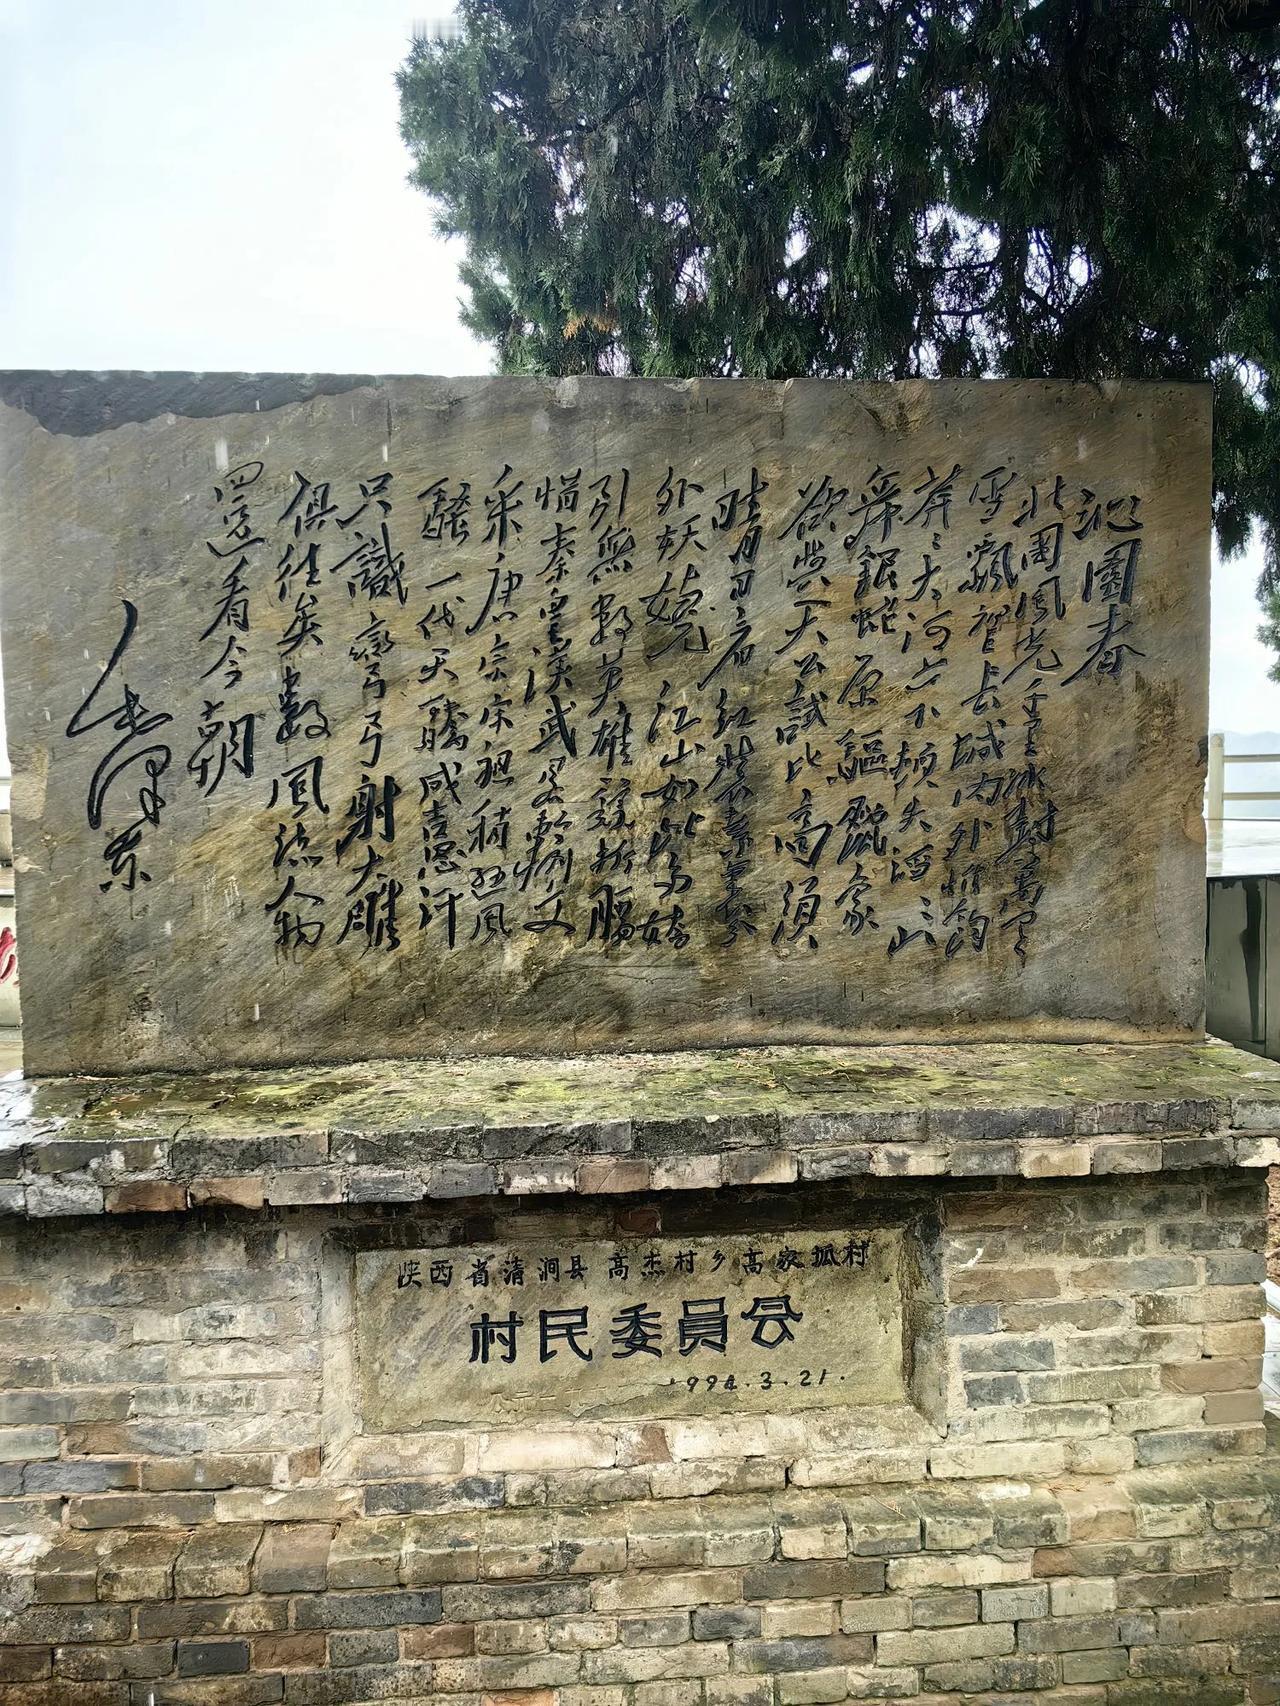 沁園春
北國風光千里冰封萬里
雪飄望長城內外惟餘
莽〻大河上下頓失滔〻山
舞銀蛇原驅臘象
欲與天公試比高須
晴日看紅裝素裹分
外妖嬈江山如此多嬌
引無數英雄競折腰
惜秦皇漢武略輸文
采唐宗宋祖稍遜風
騷一代天驕成吉思汗
只識彎弓射大雕
俱往矣數風流人物
還看今朝
毛澤東
陕西省清涧县高杰村乡高家坬村
村民委員会
1994.3.21.